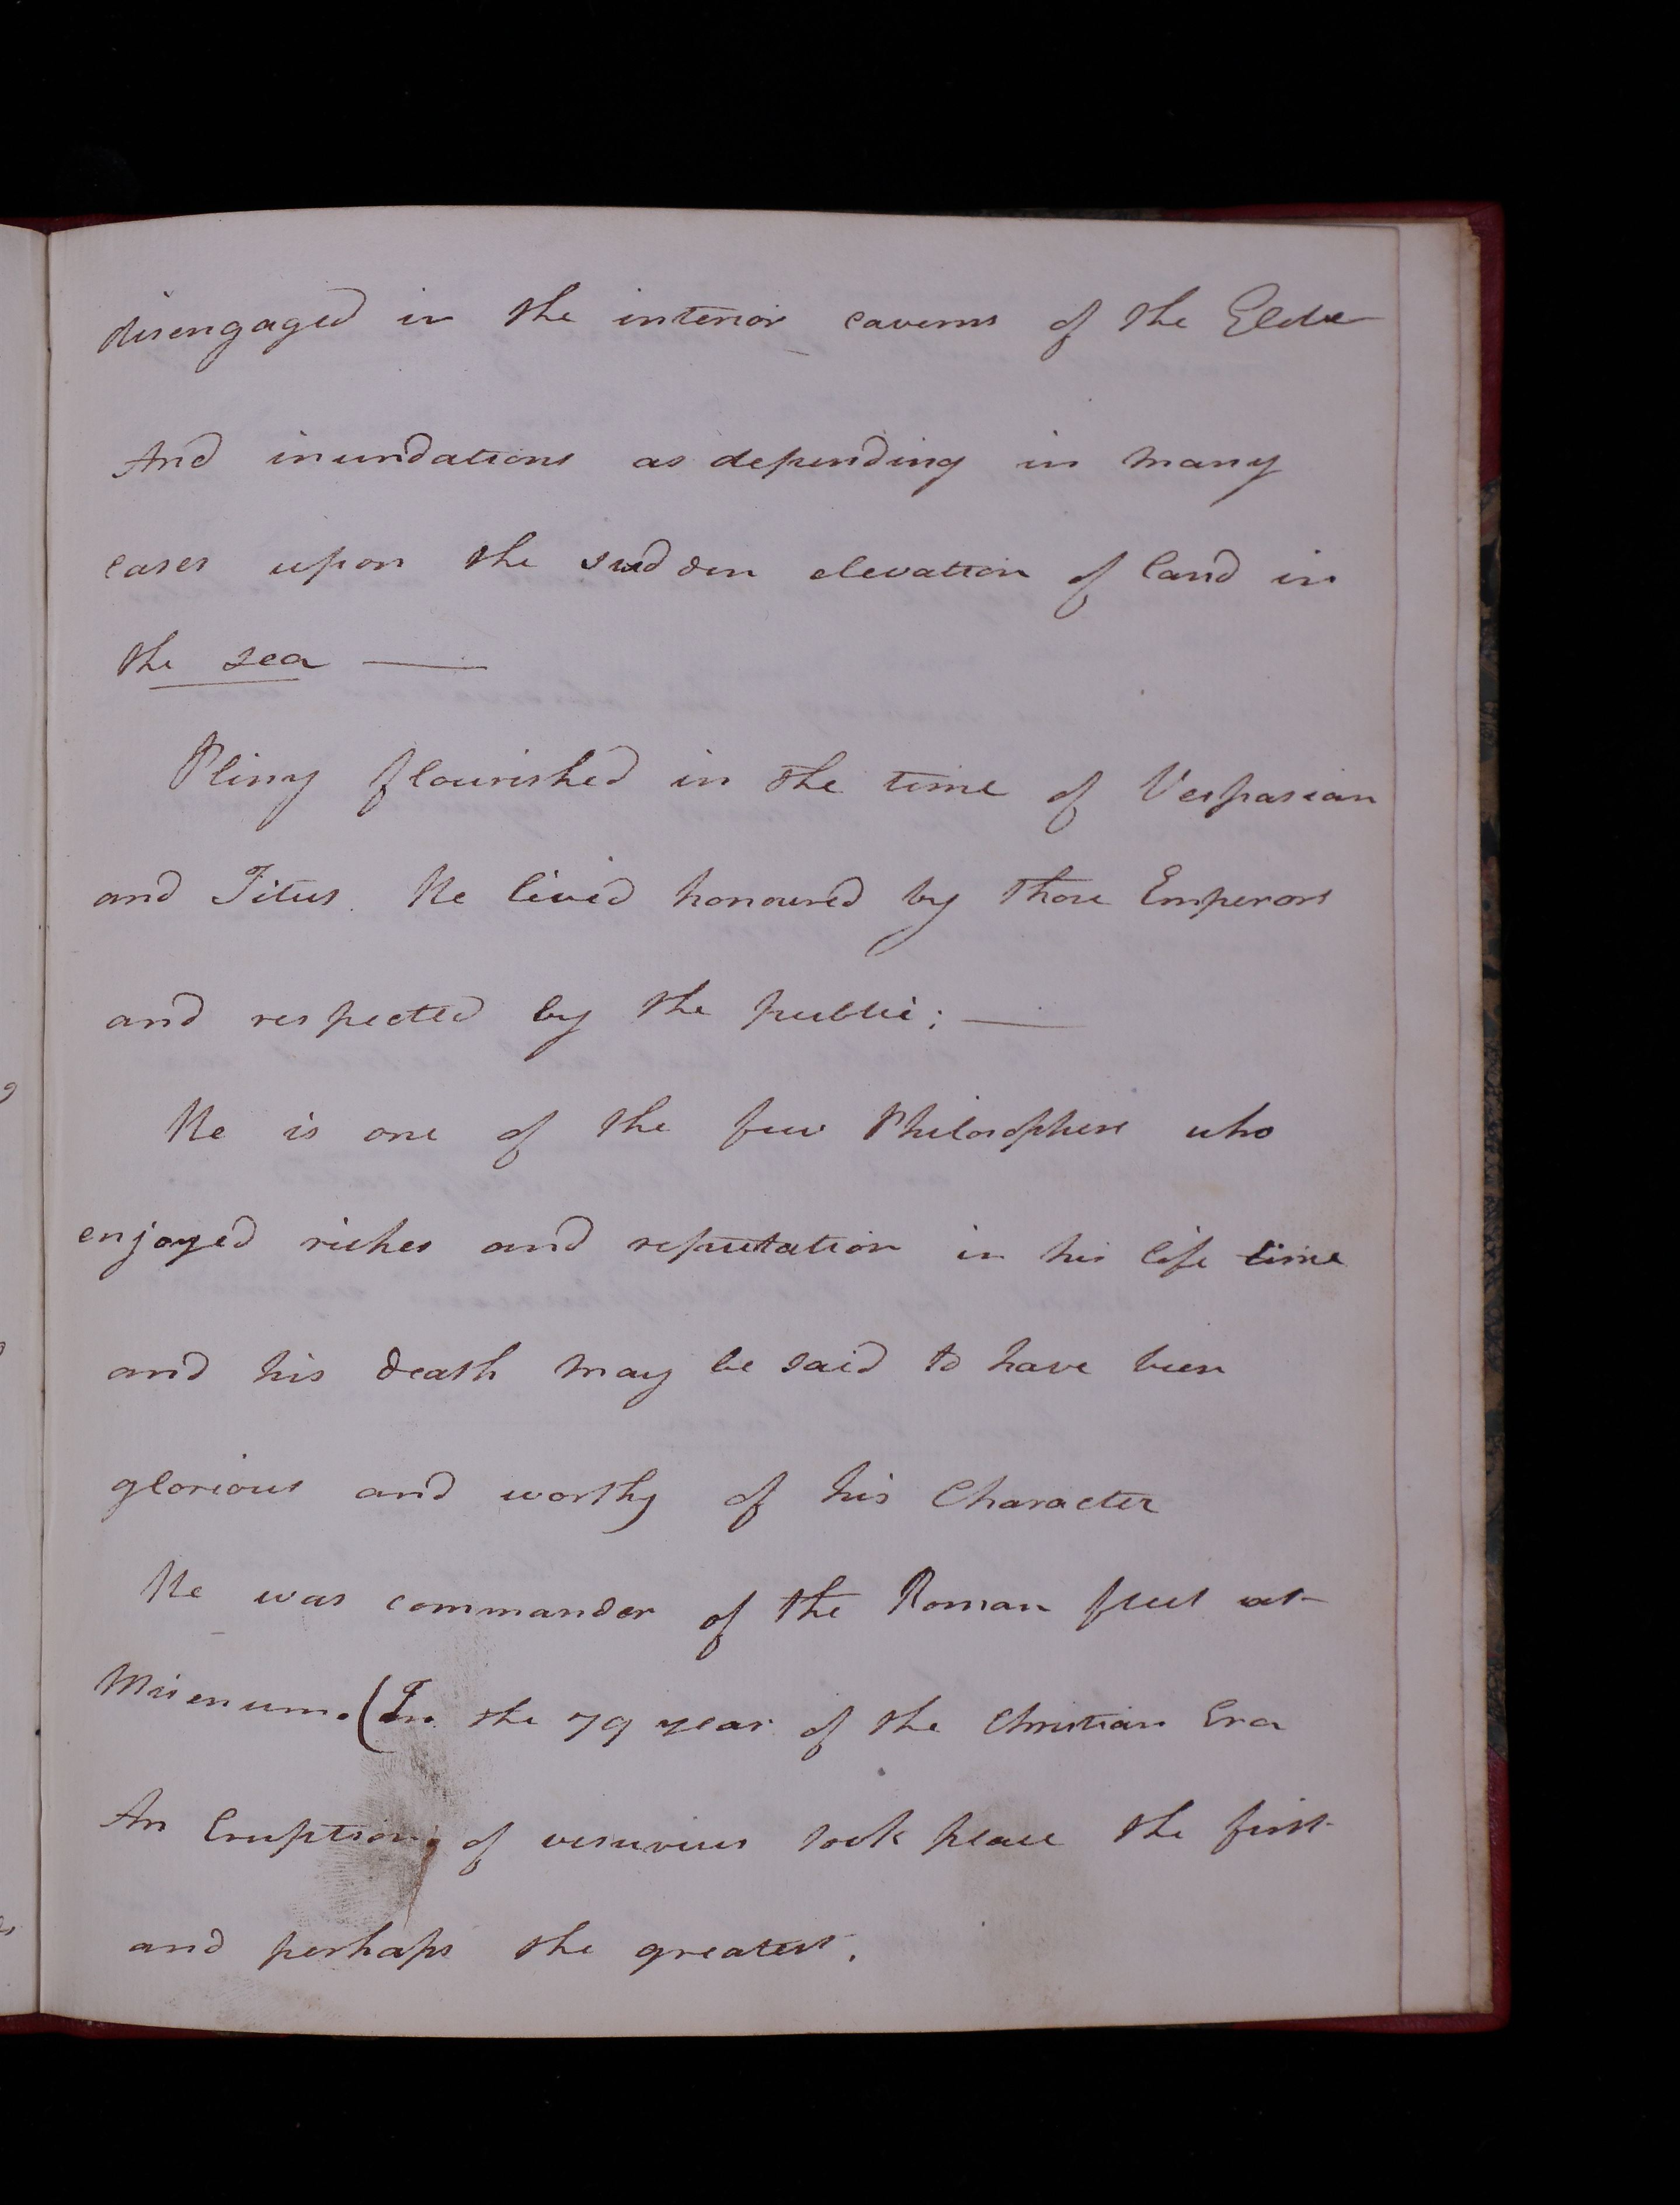 disengaged in the interior caverns of the Globe
And inundations as depending in many
cases upon the sudden elevation of land in
the sea —
Pliny flourished in the time of Vespasian
and Titus. He lived honoured by those Emperors
and respected by the public; —
He is one of the few Philosophers who
enjoyed riches and reputation in his life time
and his death may be said to have been
glorious and worthy of his Character
He was commander of the Roman fleet at
Misenum. (In the 79 year of the Christian Era
An Eruption of vesuvius took place the first
and perhaps the greatest.